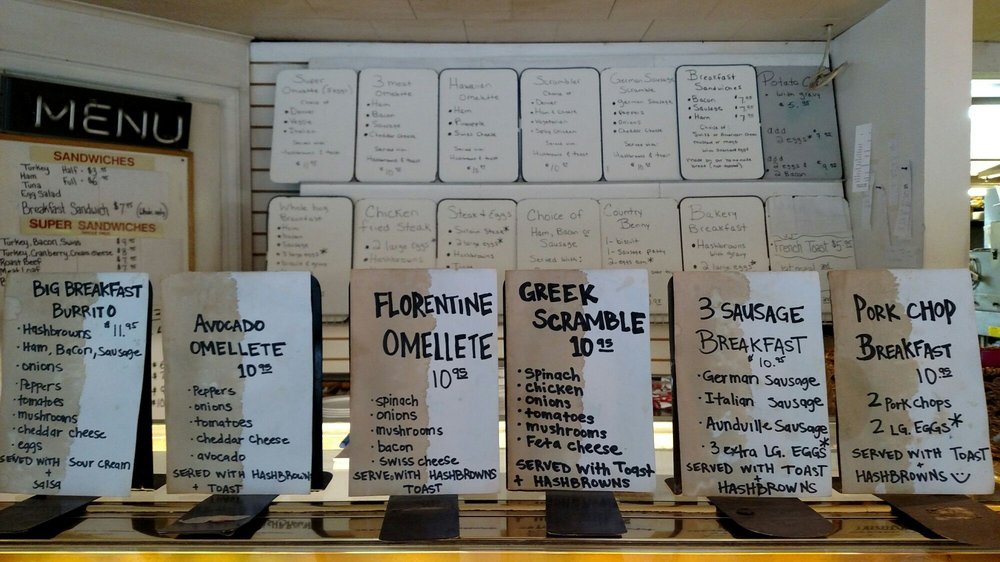 MENU
SANDWICHES
Turkey Half - $3.95
Ham Full - $6.
Tuna
Egg Salad
Breakfast Sandwich $7.95 (whole only)
SUPER SANDWICHES
Turkey, Bacon, Swiss
Turkey, Cranberry, Cream cheese
Roast Beef
Meat Loaf
Super
Omelette
Choice of
Denver
Veggie
Italian
Served with
Hashbrowns & toast
3 meat
Omelette
Ham
Bacon
Sausage
Cheddar Cheese
Served with
Hashbrowns & toast
Hawaiian
Omelette
Ham
Pineapple
Swiss Cheese
Served with
Hashbrowns & toast
Scrambler
Choice of
Denver
Ham & Cheese
Vegetarian
Served with
Hashbrowns & toast
German Sausage
Scramble
German Sausage
Peppers
Onions
Cheddar Cheese
Served with
Hashbrowns & toast
Breakfast
Sandwiches
Bacon $7.95
Sausage $7.95
Ham $7.95
Choice of
Swiss or American Cheese
Potato
with gravy
$5.95
add
2 eggs*
add
2 eggs &
2 Bacon
Whole hog
Breakfast
Ham
Bacon
Sausage
3 large eggs*
Chicken
Fried Steak
2 large eggs*
Steak & Eggs
Sirloin Steak*
2 large eggs*
Choice of
Ham, Bacon or
Sausage
Served with:
Country
Benny
1 - biscuit
1 - Sausage patty
Bakery
Breakfast
Hashbrowns
2 large eggs*
French Toast $5.95
BIG BREAKFAST
BURRITO
• Hashbrowns $11.95
• Ham, Bacon, Sausage
• onions
• Peppers
• tomatoes
• mushrooms
• cheddar cheese
• eggs
SERVED WITH SOUR CREAM
+
SALSA
AVOCADO
OMELLETE
10.95
• Peppers
• onions
• tomatoes
• cheddar cheese
• avocado
SERVED WITH HASHBROWNS
+ TOAST
FLORENTINE
OMELLETE
10.95
• spinach
• onions
• mushrooms
• bacon
• swiss cheese
SERVE WITH HASHBROWNS
TOAST
GREEK
SCRAMBLE
10.95
• spinach
• chicken
• onions
• tomatoes
• mushrooms
• Feta cheese
SERVED with Toast
+ HASHBROWNS
3 SAUSAGE
BREAKFAST
$10.95
• German Sausage
• Italian Sausage
• Aunduille Sausage
• 3 extra LG. EGGS*
SERVED WITH TOAST
+
HASHBROWNS
PORK CHOP
BREAKFAST
10.95
2 Pork Chops
2 LG. EGGS*
SERVED WITH TOAST
+ HASHBROWNS